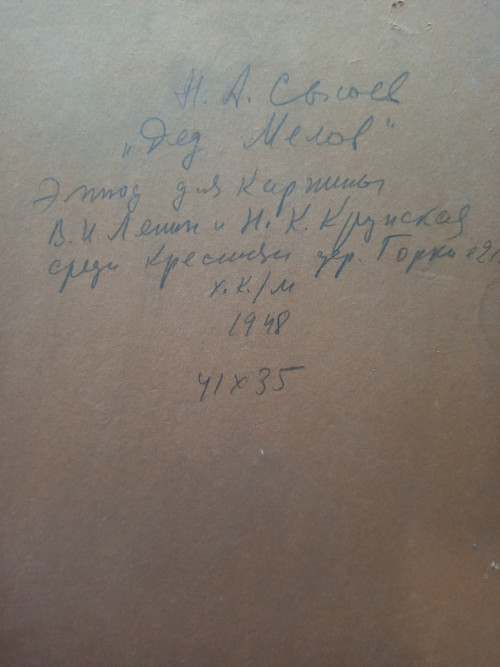 Н. А. Сысоев
„Дед Мелов"
Этюд для картины
В. И. Ленин и Н. К. Крупская
среди крестьян дер. Горки
х. к./м
1948
41 х 35